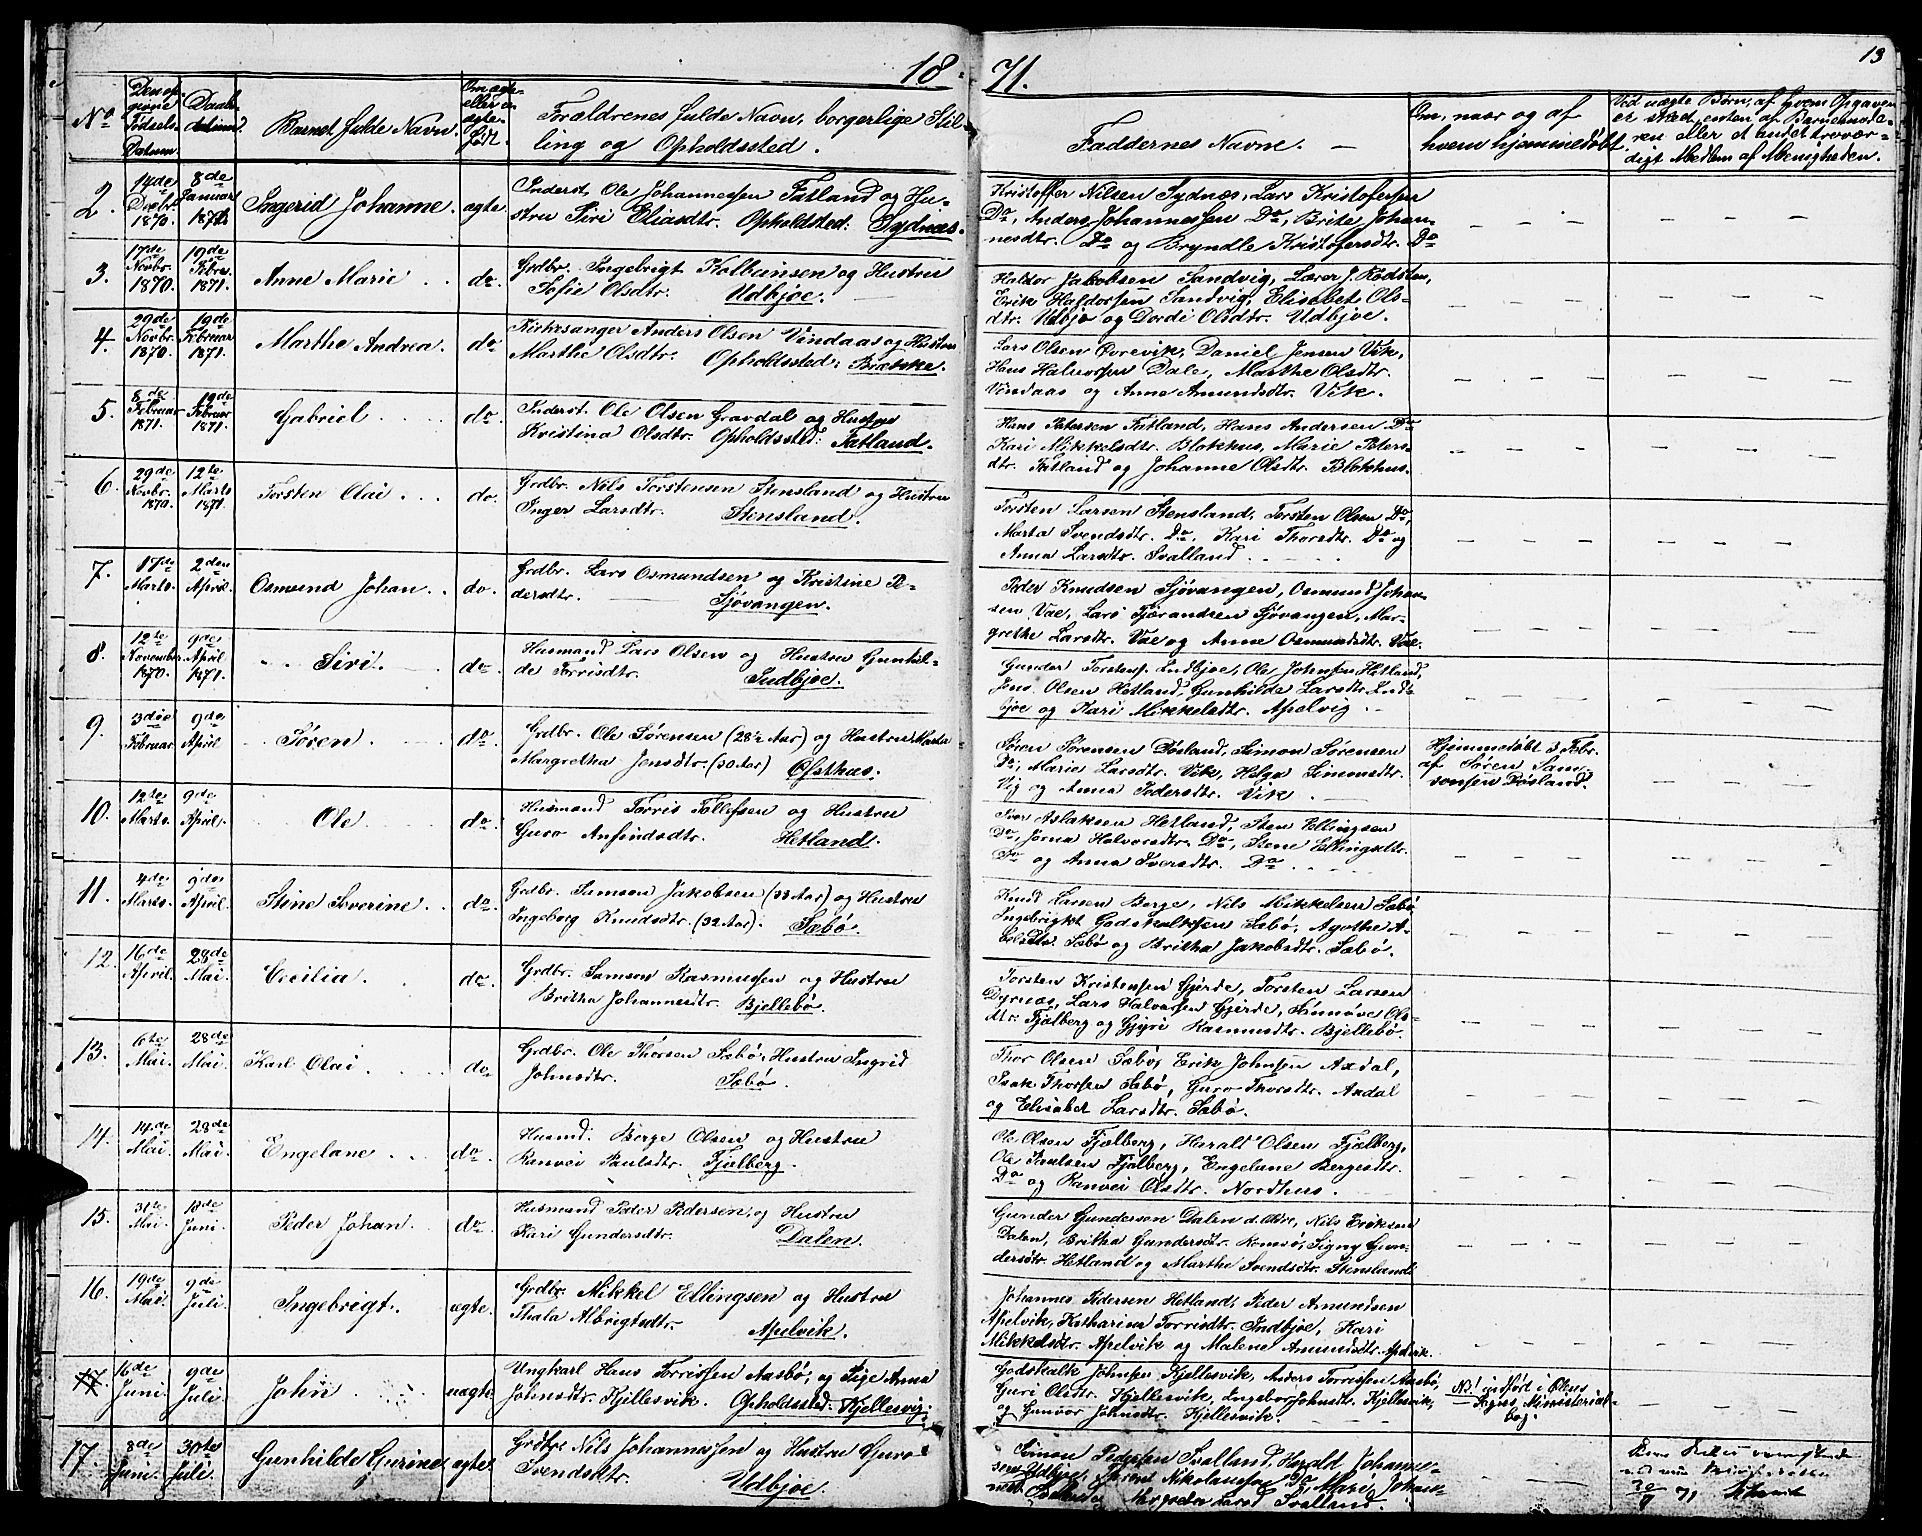 18 71.
13
No
Den op-
givne
Fødsels-
Datum.
Daabs-
datum
Barnets fulde Navn.
Om ægte
eller u-
ægte
født.
Forældrenes fulde Navn, borgerlige Stil-
ling og Opholdssted.
Faddernes Navne.
Om, naar og af
hvem hjemmedøbt.
Ved uægte Børn, af hvem Opgaven
er skeet, enten af Barnemode-
ren eller et andet trovær-
digt Medlem af Menigheden.
2. 14de Decbr. 1870. 8de Januar 1871. Ingerid Johanne. ægte
Inderst Ole Johannessen Fatland og Hu-
stru Siri Eliasdtr. Opholdsted: Sydnæs.
Kristoffer Nilsen Sydnæs, Lars Kristofersen
Do, Anders Johannessen Do, Brite Johan-
nesdtr. Do og Bryndle Kristofersdtr. Do
3. 17de Novbr. 1870. 19de Febr. 1871. Anne Marie do.
Grdbr. Ingebrigt Kolbeinsen og Hustru
Sofie Olsdtr. Udbjoe.
Haldor Jakobsen Sandvig, Lærer J. Rødsten,
Erik Haldorsen Sandvig, Elisabet Ols-
dtr. Udbjo og Dordi Olsdtr. Udbjoe.
4. 29de Novbr. 1870. 19de Februar 1871. Marthe Andrea. do
Kirkesanger Anders Olsen Vindaas og Hustru
Marthe Olsdtr. Opholdssted: Brætske.
Lars Olsen Øvrevik, Daniel Jensen Vik,
Hans Halvorsen Dale, Marthe Olsdtr.
Vindaas og Anna Amundsdtr. Vik.
5. 8de Februar 1871. 19de Februar 1871. Gabriel do.
Inderst. Ole Olsen Gravdal og Hustru
Kristina Olsdtr. Opholdssted: Fatland.
Hans Petersen Fatland, Hans Andersen Do
Kari Mikkelsdtr. Blokhus, Marie Peters-
dtr. Fatland og Johanne Olsdtr. Blokhus.
6. 29de Novbr. 1870. 12te Marts 1871. Torsten Olai do.
Grdbr. Nils Torstensen Stensland og Hustru
Inger Larsdtr. Stensland.
Torsten Larsen Stensland, Torsten Olsen Do,
Marta Svendsdtr. Do, Kari Thorsdtr. Do og
Anna Larsdtr. Svalland.
7. 17de Marts. 2den April. Osmund Johan. do.
Grdbr. Lars Osmundsen og Kristine Pe-
dersdtr. Sjøvangen.
Peder Knudsen Sjøvangen, Osmund Johan-
sen Vae, Lars Tjærandsen Sjøvangen, Mar-
grethe Larsdtr. Vae og Anne Osmundsdtr. Vae.
8. 12te November 1870. 9de April 1871. Siri. do.
Husmand Lars Olsen og Hustru Gunhil-
de Torrisdtr. Indbjoe.
Gunder Torstens. Indbjoe, Ole Johnsen Hetland,
Jens Olsen Hetland, Gunhilde Larsdtr. Ind-
bjoe og Kari Mikkelsdtr. Apelvig.
9. 3die Februar 9de April Søren. do.
Grdbr. Ole Sørensen (28½ Aar) og Hustru Marta
Margretha Jensdtr. (30 Aar) Østhus.
Søren Sørensen Døsland, Simon Sørensen
Do, Marie Larsdtr. Vik, Helga Simonsdtr.
Vig og Anna Pedersdtr. Vik.
Hjemmedøbt 3 Febr.
af Søren Sam-
sonsen Døsland.
10. 12te Marts. 9de April. Ole do.
Husmand Torris Tollefsen og Hustru
Guro Anfindsdtr. Hetland.
Ivar Aslaksen Hetland, Sten Ellingsen
Do, Jorna Halvorsdtr. Do, Stene Ellingsdtr.
Do og Anna Iversdtr. Do
11. 4de Marts. 9de April. Stine Severine. do.
Grdbr. Samson Jakobsen (33 Aar) og Hustru
Ingeborg Knudsdtr. (32 Aar). Sæbø.
Knud Larsen Berge, Nils Mikkelsen Sæbø
Ingebrigt Godskalksen Sæbø, Agothe A-
Sæbø og Britha Jakobsdtr. Sæbø.
12. 16de April. 28de Mai. Cecilia. do.
Grdbr. Samson Rasmussen og Hustru
Britha Johannesdtr. Bjellebø.
Torsten Kristensen Gjerde, Torsten Larsen
Dyrnæs, Lars Halvorsen Gjerde, Sinnove Ols-
dtr. Fjælberg og Gjyri Rasmusdtr. Bjellebø.
13. 6te Mai. 28de Mai. Karl Olai. do.
Grdbr. Ole Thorsen Sæbø, Hustru Ingrid
Johnsdtr. Sæbø.
Thor Olsen Sæbø, Erik Johnsen Axdal,
Isak Thorsen Sæbø, Guro Thorsdtr. Axdal
og Elisabet Larsdtr. Sæbø.
14. 14de Mai. 28de Mai. Engelane do.
Husmd. Berge Olsen og Hustru
Ranvei Paulsdtr. Fjælberg.
Ole Olsen Fjælberg, Herald Olsen Fjælberg,
Ole Paulsen Fjælberg, Engelane Bergesdtr.
Do og Ranvei Olsdtr. Nordhus.
15. 31te Mai. 18de Juni. Peder Johan. do.
Husmand Peder Pedersen og Hustru
Kari Gundersdtr. Dalen.
Gunder Gundersen Dalen d. Ældre, Nils Eriksen
Dalen, Britha Gundersdtr. Romsø, Signy Gun-
dersdtr. Hetland og Marthe Svendsdtr. Stensland.
16. 19de Mai. 9de Juli. Ingebrigt. ægte.
Grdbr. Mikkel Ellingsen og Hustru
Thala Albrigtsdtr. Apelvik.
Johannes Pedersen Hetland, Peder Amundsen
Apelvik, Katharina Torrisdtr. Indbjoe, Kari
Mikkelsdtr. Apelvik og Malene Amundsdtr. Apelvik.
17. 16de Juni. 9de Juli. John uægte
Ungkarl Hans Torrissen Aasbø, og Pige Anna
Johnsdtr. Kjellesvik. Opholdssted: Kjellesvig.
Godskalk Johnsen Kjellesvik, Anders Torrissen Aasbø,
Guri Olsdtr. Kjellesvik, Ingebor Johnsdtr. Kjellesvik,
og Gunvor Johnsdtr. Kjellesvik.
NB! indført i Ølens
Sogns Ministerial-
bog.
17. 8de Juni. 30te Juli. Gunhilde Gurine ægte
Grdbr. Nils Johannessen og Hustru Guro
Svendsdtr. Udbjoe.
Simon Pedersen Svalland, Herald Johanne-
sen Udbjoe, Nikolaussen Do, Mari Johan-
nesd. Svalland og Margreta Larsd. Svalland.
30/7 71